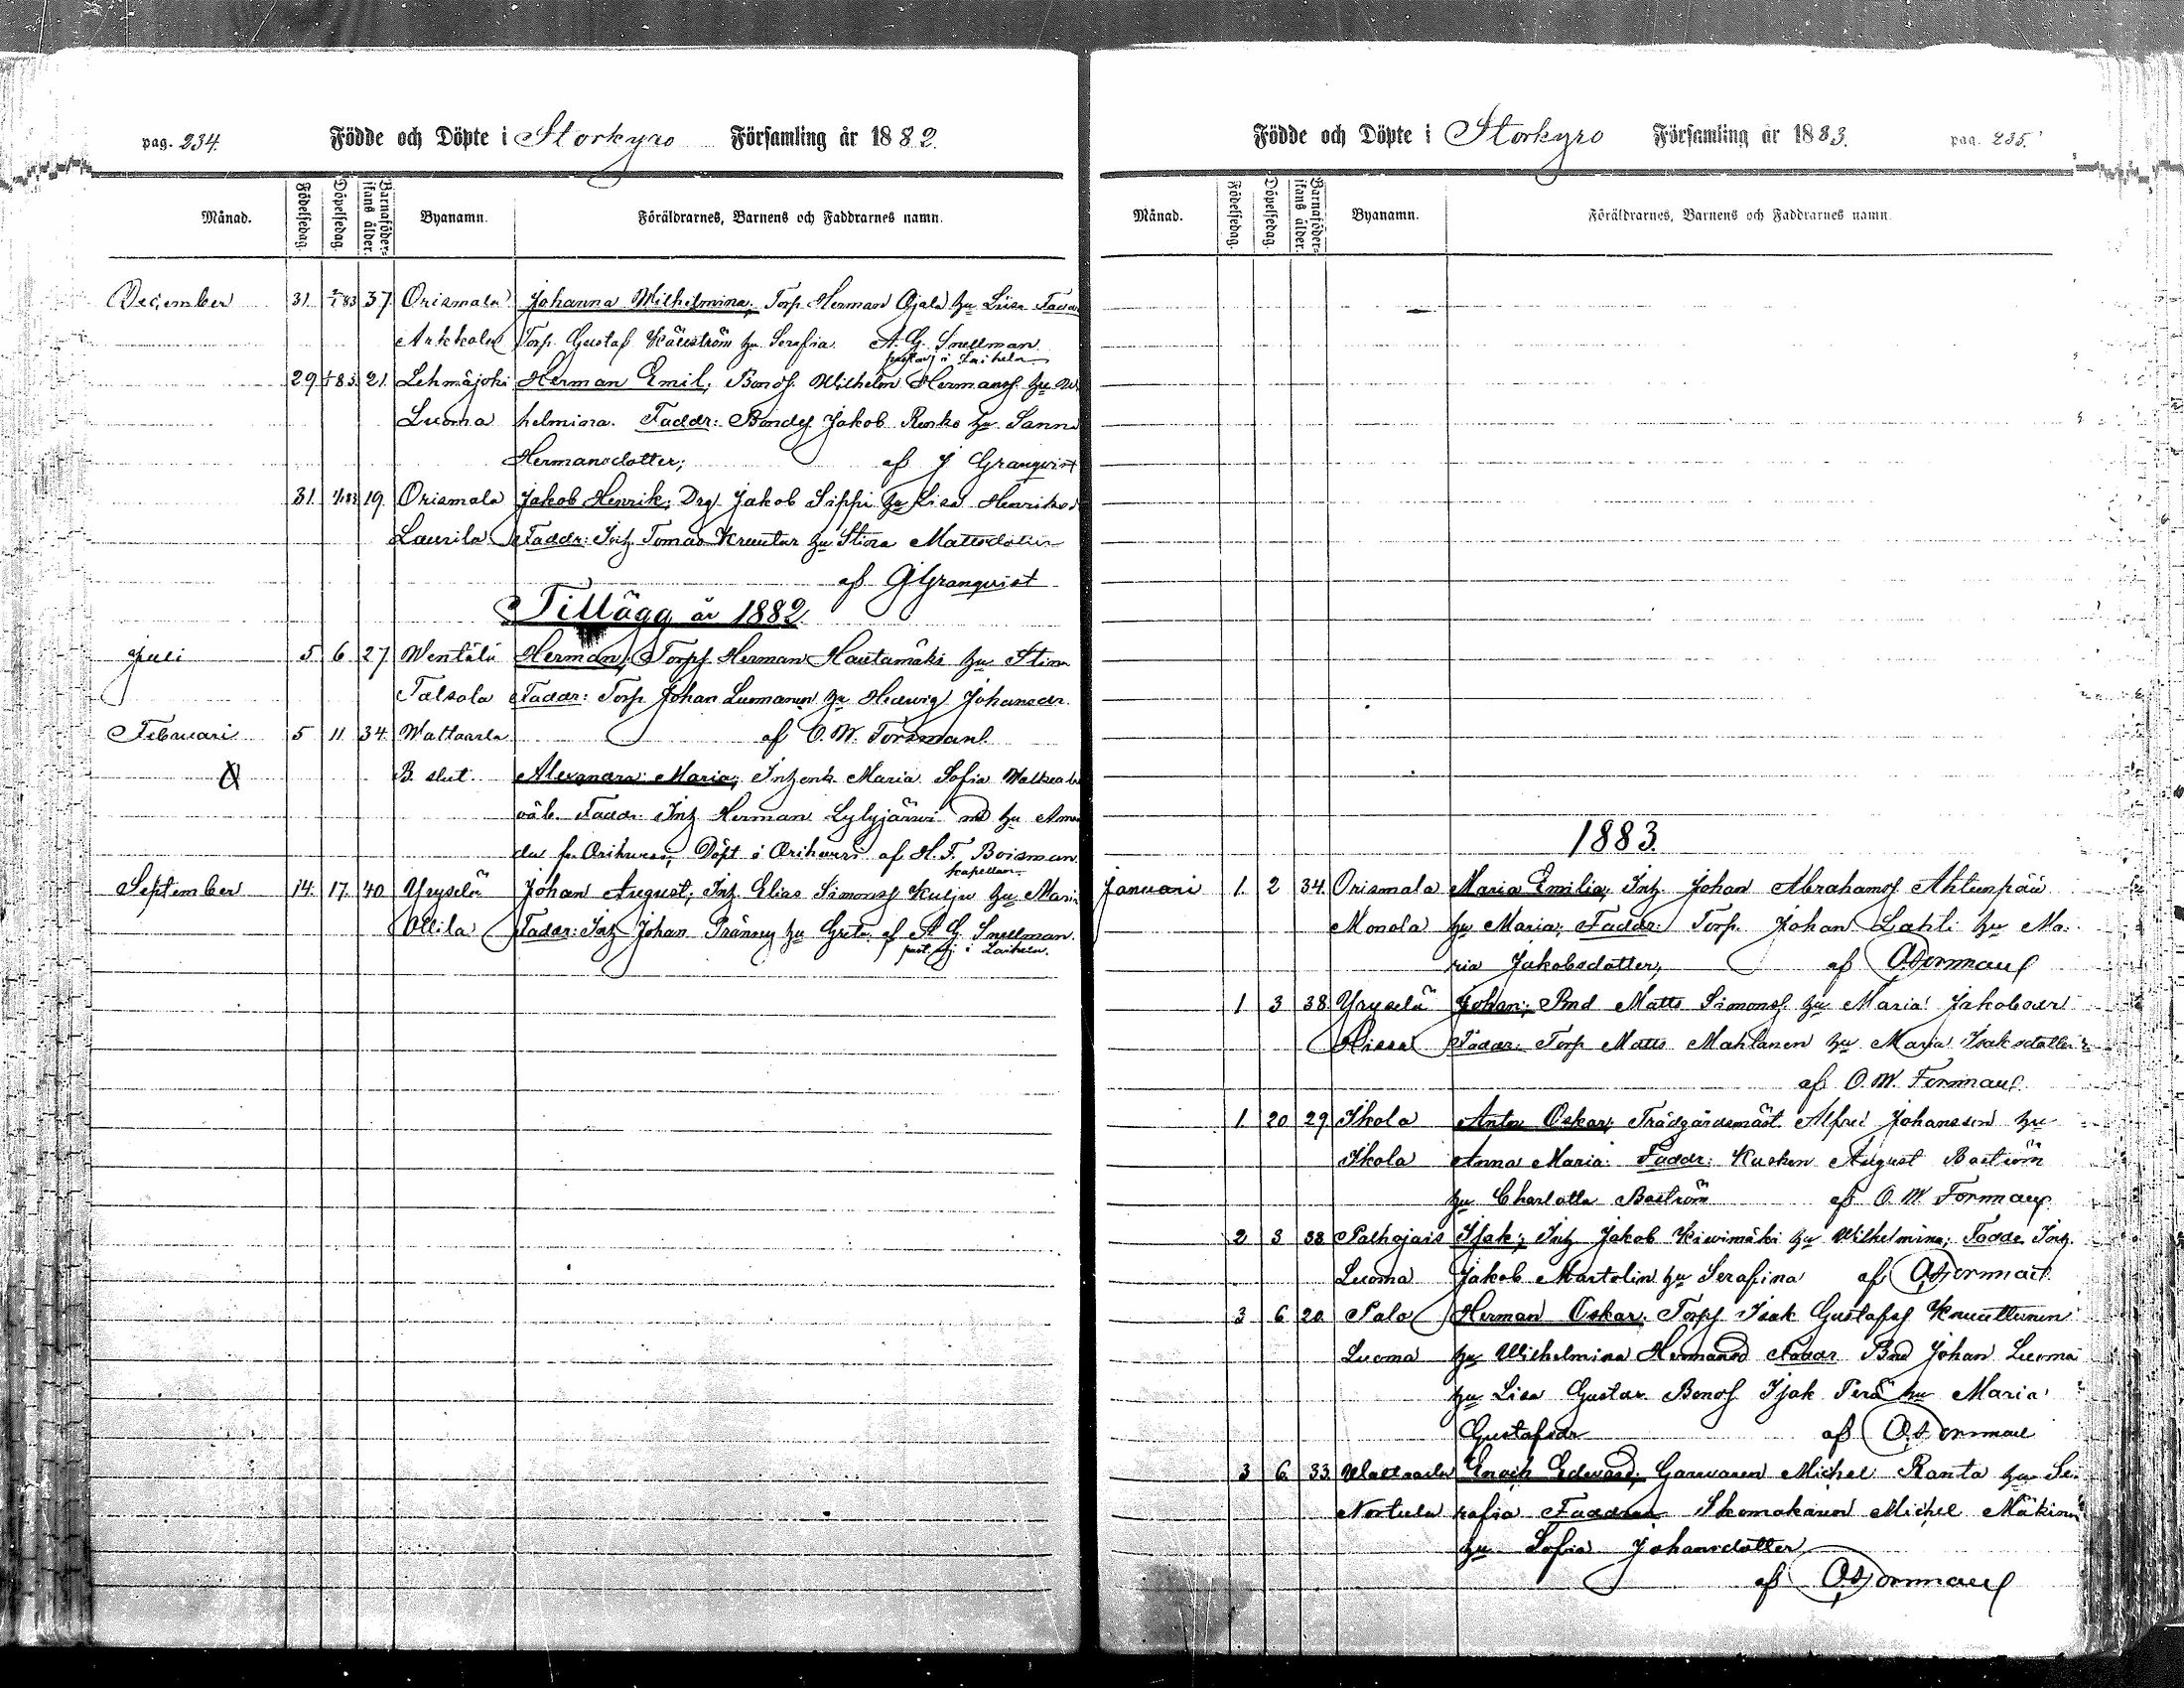 pag. 234. Födde och Döpte i Storkyro Församling år 1882.
Månad. Födelsedag. Döpelsedag. Barnaföderskans ålder. Byanamn. Föräldrarnes, Barnens och Faddrarnes namn.
December 31. 2/1 83 37. Orismala Johanna Wilhelmina; Torp. Herman Ojala hu Lisa Fadd
Arkkola Torp. Gustaf hu Serafia A. G. Snellman
past. adj i Laihela
29. 1/1 83. 21. Lehmäjoki Herman Emil; Bonds. Wilhelm Hermans. hu Wi
Luoma helmina. Faddr: Bondes Jakob Renko hu Sanna
Hermansdotter; af J Granqvist
31. 1/1 83 19. Orismala Jakob Henrik; Drg. Jakob Sippi hu Lisa Henriksd
Laurila Faddr: Inh. Tomas hu Stina Mattsdotter
af J Granqvist
Tillägg år 1882.
Juli 5. 6 27. Wentälä Herman; Torps. Herman Hautamäki hu Stina
Talsola Faddr: Torp. Johan Luomanen hu Hedwig Johansdr.
Februari 5 11. 34. Wattaala af O. W. Forsman.
B. slut. Alexandra Maria; Inh.enk. Maria Sofia
oäb. Faddr: Inh Herman Lylyjärwi md hu Aman
da fr. Orihwesi; Döpt i Orihwesi af H. F. Boisman.
kapellan
September 14. 17. 40 Yryselä Johan August; Inh. Elias Simonss Kulju hu Maria
Ollila Faddr: Inh Johan Pränny hu Greta af A. G. Snellman.
past. adj. i Laihela.
Födde och Döpte i Storkyro Församling år 1883. pag. 235.
Månad. Födelsedag. Döpelsedag. Barnaföderskans ålder. Byanamn. Föräldrarnes, Barnens och Faddrarnes namn.
1883.
Januari 1. 2 34. Orismala Maria Emilia; Inh. Johan Abrahamss.
Monola hu Maria; Faddr: Torp. Johan Lahti hu Ma-
ria Jakobsdotter; af O. Forsman
1 3 38. Yryselä Johan; Bnd Matts Simonss. hu Maria Jakobsdr
Hissa Faddr: Torp Matts Mahlanen hu Maria Isaksdotter
af O. W. Forsman.
1. 20 29. Ikola Anton Oskar; Trädgårdsmäst. Alfred Johansson hu
Ikola Anna Maria. Faddr: Kusken August Boström
hu Charlotta Boström af O. W. Forsman.
2 3 38 Palhojais Isak; Inh Jakob Kiwimäki hu Wilhelmina; Fadd. Inh.
Luoma Jakob Martolin hu Serafina af O. Forsman
3 6 20. Palo Herman Oskar. Torps Isak Gustafss Knuuttunen
Luoma hu Wilhelmina Hermansd Faddr Bnd Johan Luoma
hu Lisa Gustdr. Bonds Isak Perä hu Maria
Gustafsdr af O. Forsman
3 6 33. Wattaala Enoch Edward; Garwaren Michel Ranta hu Se-
Nortula rafia Faddrar Skomakaren Michel Mäkinen
hu Sofia Johansdotter
af O. Forsman